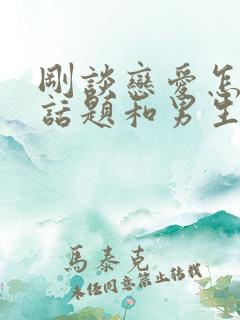 剛談戀愛怎
話題和男生
馬泰克
未经同意禁止转载